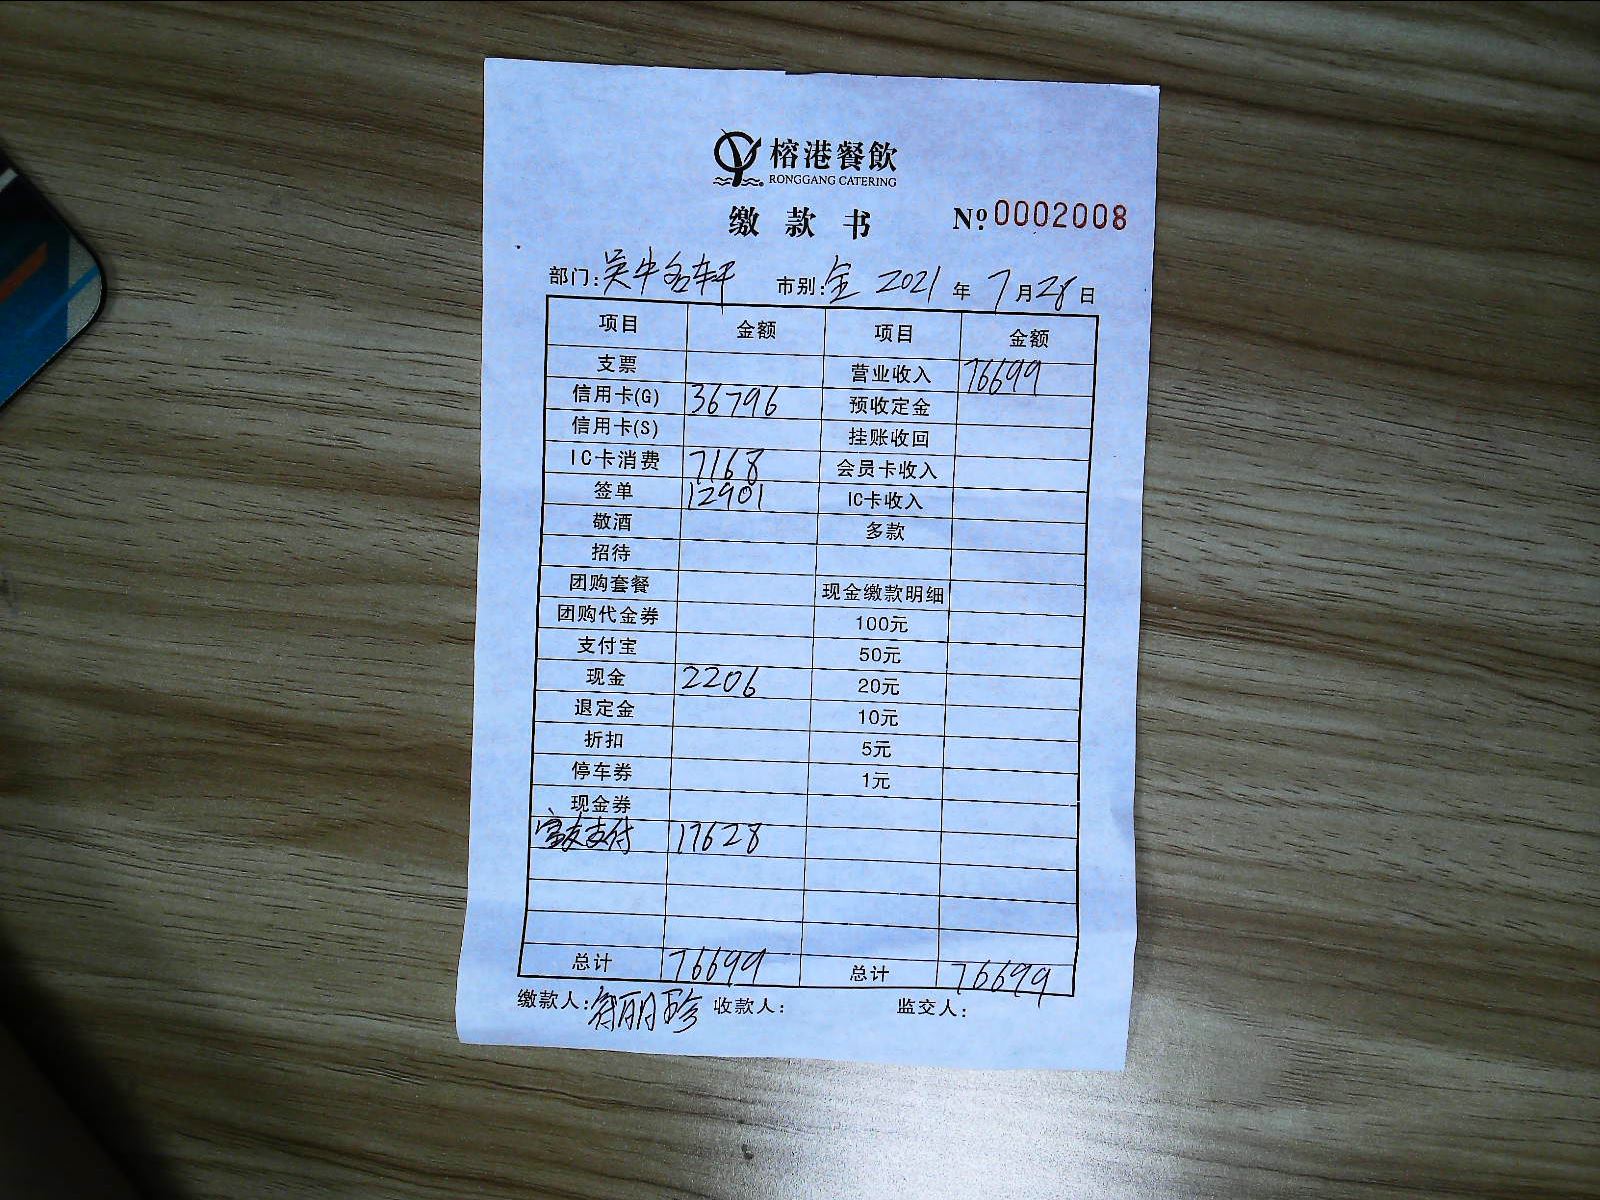 榕港餐飲
RONGGANG CATERING
缴款书 Nº 0002008
部门: 市别:全 2021年7月28日
项目 金额 项目 金额
支票 营业收入 76699
信用卡(G) 36796 预收定金
信用卡(S) 挂账收回
IC卡消费 7168 会员卡收入
签单 12901 IC卡收入
敬酒 多款
招待
团购套餐 现金缴款明细
团购代金券 100元
支付宝 50元
现金 2206 20元
退定金 10元
折扣 5元
停车券 1元
现金券
支付 17628
总计 76699 总计 76699
缴款人: 丽珍 收款人: 监交人: